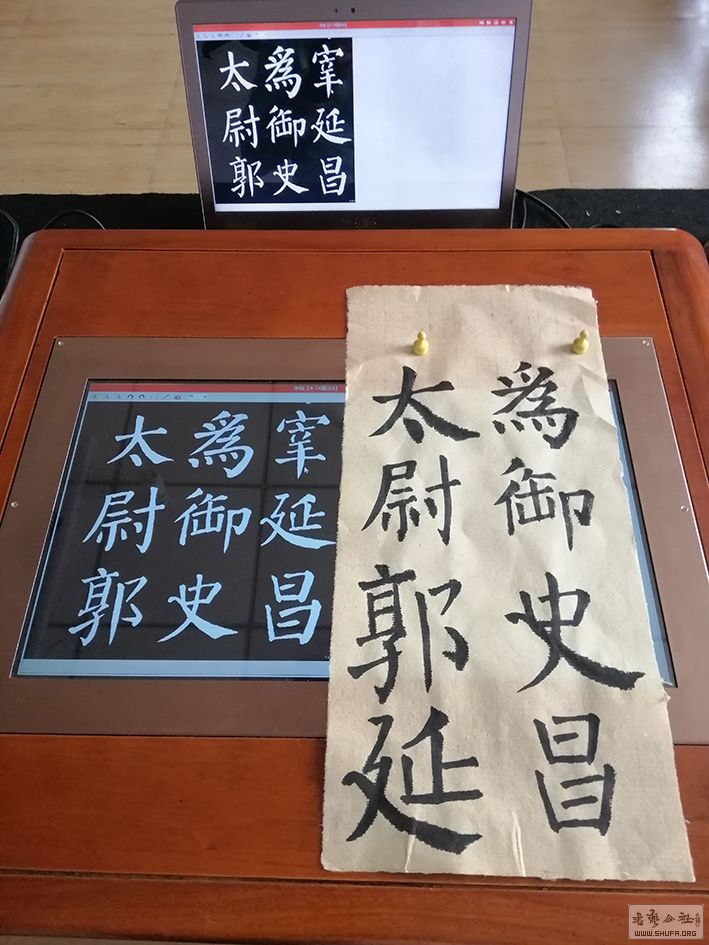 宰延昌
爲御史
太尉郭
宰延昌
爲御史
太尉郭
爲御史昌
太尉郭延
書藝公社
WWW.SHUFA.ORG